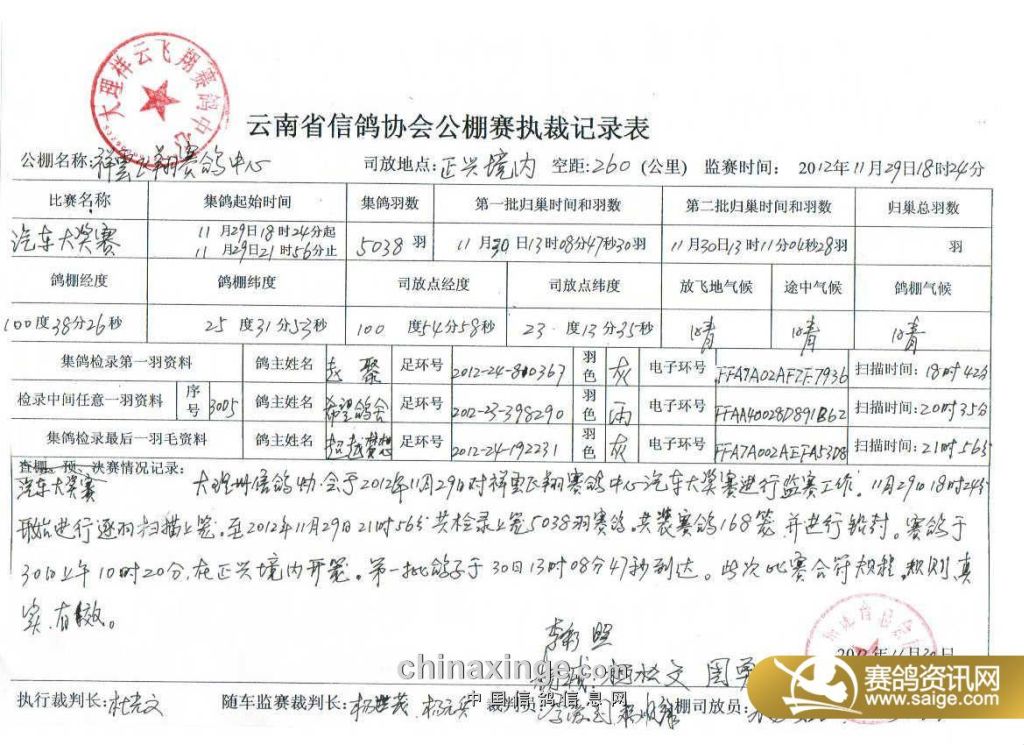 大理祥云飞翔赛鸽中心
云南省信鸽协会公棚赛执裁记录表
公棚名称:祥雲飞翔赛鸽中心 司放地点:正兴境内 空距:260 (公里) 监赛时间: 2012年11月29日18时24分
比赛名称 集鸽起始时间 集鸽羽数 第一批归巢时间和羽数 第二批归巢时间和羽数 归巢总羽数
汽车大奖赛 11月29日18时24分起 5038羽 11月30日13时08分47秒30羽 11月30日13时11分06秒28羽 羽
11月29日21时56分止
鸽棚经度 鸽棚纬度 司放点经度 司放点纬度 放飞地气候 途中气候 鸽棚气候
100度38分26秒 25度31分53秒 100度54分58秒 23度13分35秒 晴 晴 晴
集鸽检录第一羽资料 鸽主姓名 足环号 2012-24-810367 羽色 灰 电子环号 FFA7A02AF2F7936 扫描时间:18时42分
检录中间任意一羽资料 序号 3005 鸽主姓名 希望鸽舍 足环号 2012-23-398290 羽色 雨 电子环号 FFAA40028D891B62 扫描时间:20时35分
集鸽检录最后一羽毛资料 鸽主姓名 超越梦想 足环号 2012-24-192231 羽色 灰 电子环号 FFA7A002AEFA53D8 扫描时间:21时56分
查棚、预、决赛情况记录:
汽车大奖赛 大理州信鸽协会于2012年11月29日对祥雲飞翔赛鸽中心汽车大奖赛进行监赛工作。11月29日18时24分
开始进行逐羽扫描上笼。至2012年11月29日21时56分共检录上笼5038羽赛鸽。共装赛鸽168笼,并进行铅封。赛鸽于
30日上午10时20分,在正兴境内开笼。第一批鸽子于30日13时08分47秒到达。此次比赛合符规程、规则,真
实、有效。
2012年11月30日
执行裁判长: 随车监赛裁判长: 裁判员: 公棚司放员:
chinaxinge.com
中国信鸽信息网
赛鸽资讯网
www.saige.com